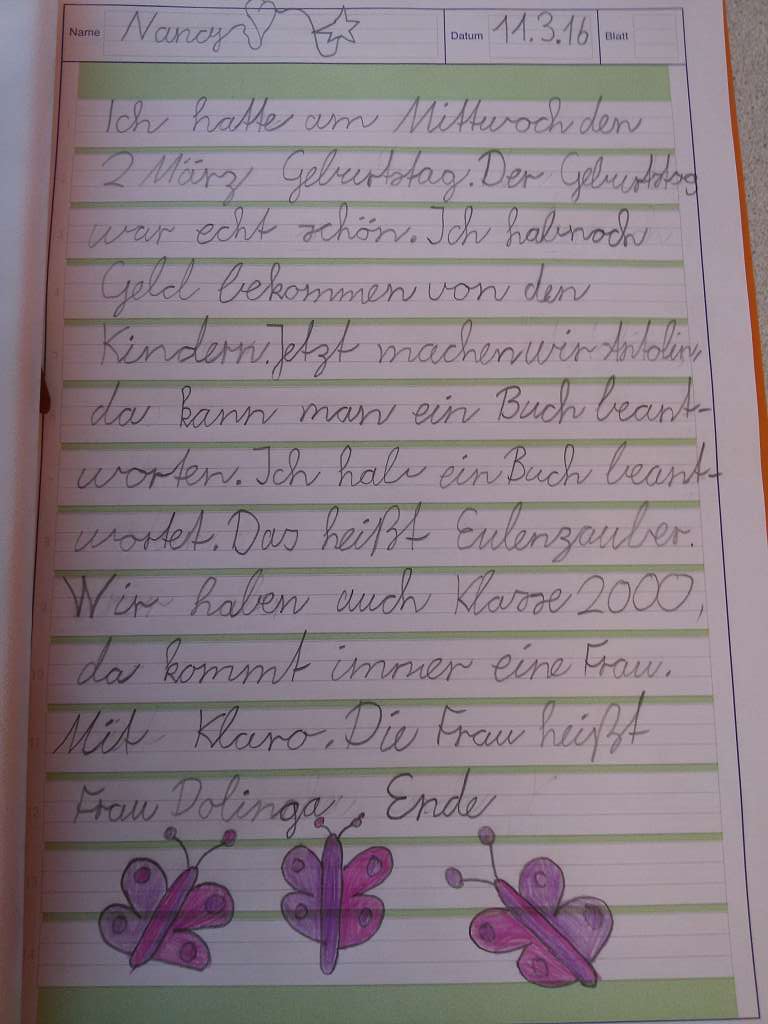 Name Nancy Datum 11.3.16 Blatt
Ich hatte am Mittwoch den
2 März Geburtstag. Der Geburtstag
war echt schön. Ich hab noch
Geld bekommen von den
Kindern. Jetzt machen wir Antolin,
da kann man ein Buch beant-
worten. Ich hab ein Buch beant-
wortet. Das heißt Eulenzauber.
Wir haben auch Klasse 2000,
da kommt immer eine Frau.
Mit Klaro. Die Frau heißt
Frau Dolinga. Ende